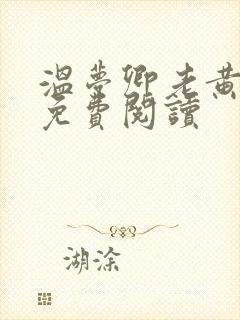 溫夢卿老黃
免費閱讀
湖涂